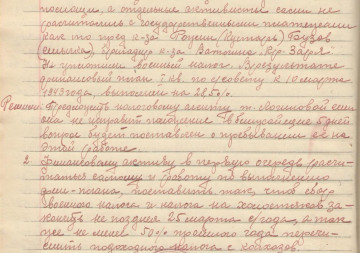 а отдельные активисты сами не
рассчитались с государственными платежами
как то пред. к-за
бригадир к-за
Не уплатили военный налог. В результате
финансовый план I кв. по с/совету к 10 марта
1943 года, выполнен на 28.5%.
Решили: Предупредить налогового агента т. если
она не исправит положение в 5 дней
вопрос будет поставлен о пребывании её на
этой работе.
2. Финансовому активу в первую очередь рассчи-
таться самому и работу по выполнению
фин-плана, поставить так, чтоб сбор
военного налога и налога на холостяков за-
кончить не позднее 25 марта с/года, а так
же не менее 50% прошлого года перечи-
слить подоходного налога с колхозов.